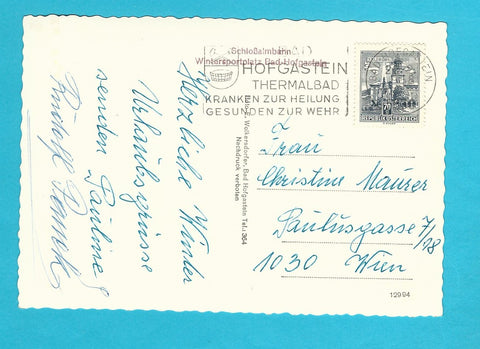 Schloßalmbahn
Wintersportplatz Bad Hofgastein
HOFGASTEIN
THERMALBAD
KRANKEN ZUR HEILUNG
GESUNDEN ZUR WEHR
REPUBLIK ÖSTERREICH
Herzliche Winter
Urlaubsgrüsse
senden Pauline &
Rudolf
Wolkersdorfer, Bad Hofgastein Tel. 364
Nachdruck verboten
Frau
Christine Maurer
Paulusgasse 7/18
1030 Wien
12994